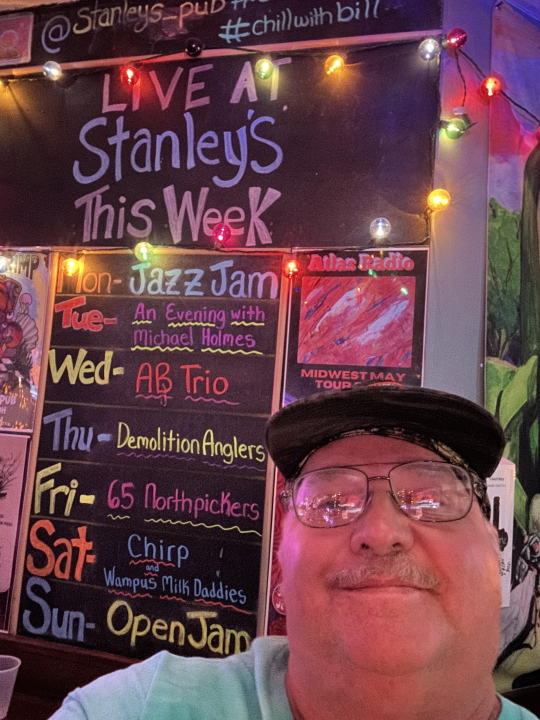 @Stanleys_pub
#chillwithbill
LIVE AT
Stanley's
This Week
Mon- Jazz Jam
Tue- An Evening with
Michael Holmes
Wed- AB Trio
Thu- Demolition Anglers
Fri- 65 Northpickers
Sat- Chirp
and
Wampus Milk Daddies
Sun- Open Jam
Atlas Radio
MIDWEST MAY
TOUR